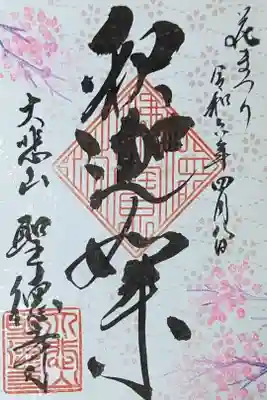 花まつり
令和六年四月八日
釈迦如来
大悲山
聖德寺